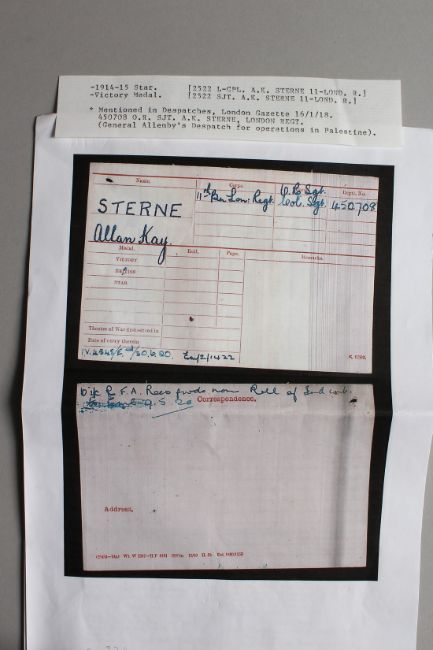 -1914-15 Star. [2522 L-CPL. A.K. STERNE 11-LOND. R.]
-Victory Medal. [2522 SJT. A.K. STERNE 11-LOND. R.]
* Mentioned in Despatches, London Gazette 16/1/18.
450708 Q.R. SJT. A.K. STERNE, LONDON REGT.
(General Allenby's Despatch for operations in Palestine).
Name. Corps. Regtl. No.
STERNE 11th Bn Lon: Regt. Q.R. Sgt. Col. Sgt. 450708
Allan Kay.
Medal. Roll. Page. Remarks.
VICTORY
BRITISH
STAR
Theatre of War first served in
Date of entry therein
K. 1380.
R.F.A. Reco fwds nom Roll of Ind
Correspondence.
Address,